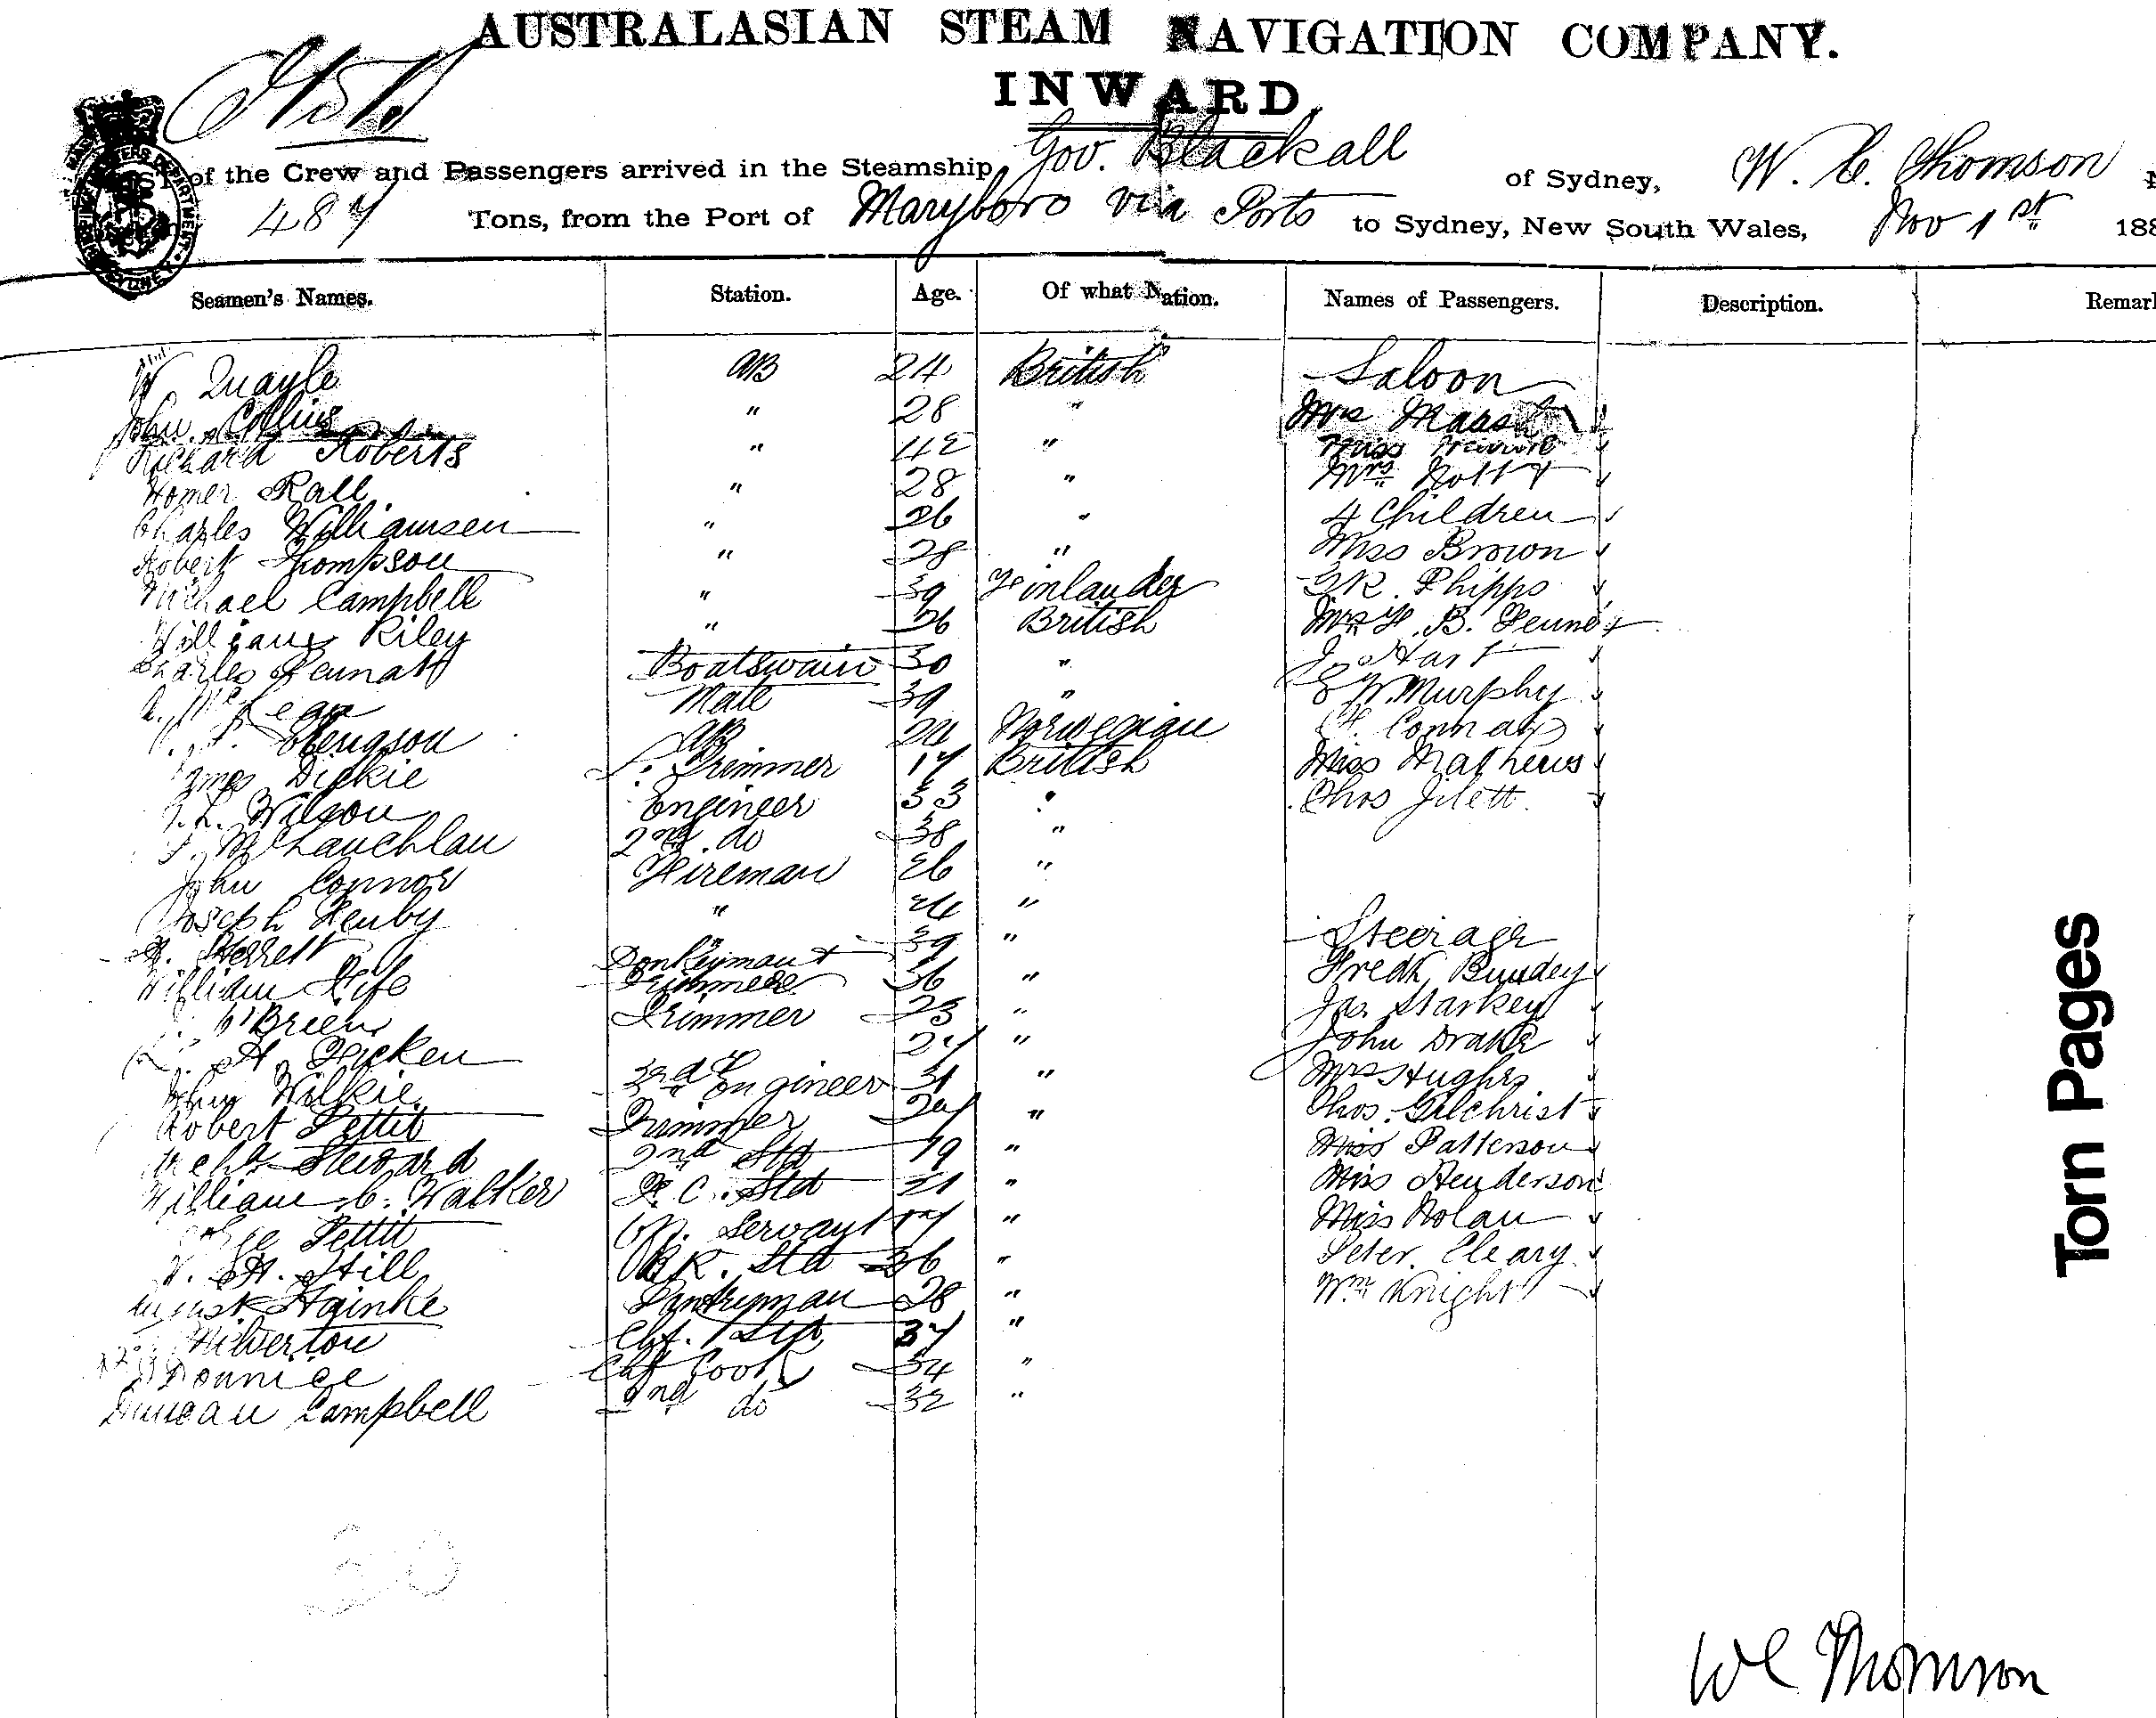 AUSTRALASIAN STEAM NAVIGATION COMPANY.
INWARD.
of the Crew and Passengers arrived in the Steamship Gov. Blackall of Sydney, W. C. Thomson
487 Tons, from the Port of Maryboro via Ports to Sydney, New South Wales, Nov 1st 188
Seamen's Names. Station. Age. Of what Nation. Names of Passengers. Description. Remar
W Quayle AB 24 British Saloon
John Collins " 28 " Mrs
Richard Roberts " 42 " Miss
Homer Rall " 28 " Mrs Nott &
Charles Williamsen " 26 " 4 Children
Robert Thompson " 28 " Miss Brown
Michael Campbell " 39 Finlander Phipps
William Riley " 26 British Mrs B.
Charles Boatswain 30 " J. Hart
Mate 39 " W. Murphy
AB 22 Norwegian
James Dickie Trimmer 17 British Miss Mathews
Wilson Engineer 33 " Thos Jilett
McLauchlan 2nd do 38 "
John Connor Fireman 26 "
Joseph Henby " 24 "
Sterrett " 39 " Steerage
William Fife Donkeyman & Trimmer 36 " Fredk Bundey
O'Brien Trimmer 23 " Jas. Starkey
H. Ficken 27 " John Drake
John Wilkie 3rd Engineer 31 " Mrs Hughes
Robert Pettit Trimmer 24 " Thos. Gilchrist
Steward 2nd Std 19 " Miss Patterson
William C. Walker F. C. Std 31 " Miss Henderson
Pettit Servant 17 " Miss Nolan
H. Still B.R. Std 36 " Peter Cleary
August Hainke Pantryman 28 " Wm Knight
Milverton Chf. Std 37 "
Chf Cook 34 "
Duncan Campbell 2nd do 32 "
30
Torn Pages
WC Thomson